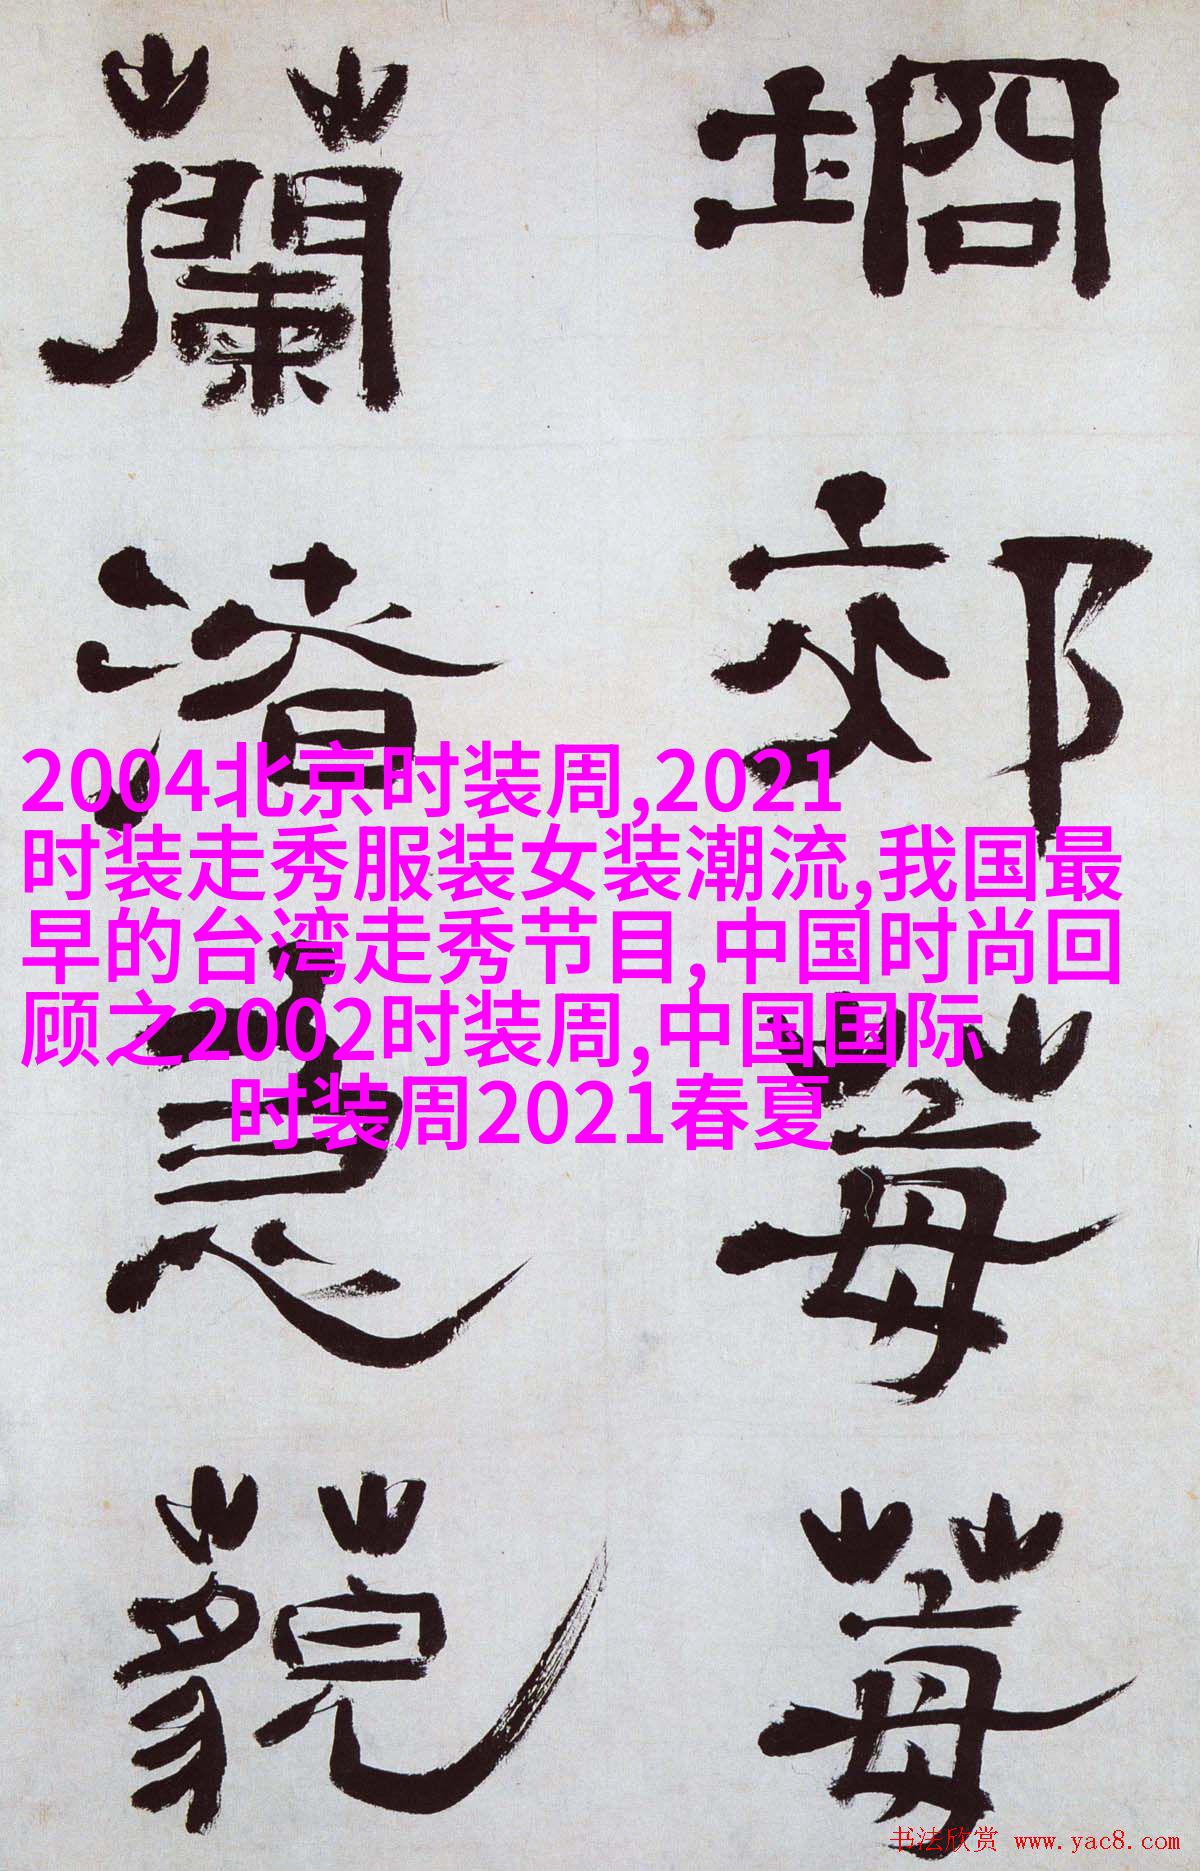 2004北京时装周,2021
时装走秀服装女装潮流,我国最
早的台湾走秀节目,中国时尚回
顾之2002时装周,中国国际
时装周2021春夏
埛郊莓莓
蘭渚藐
书法欣赏 www.yac8.com